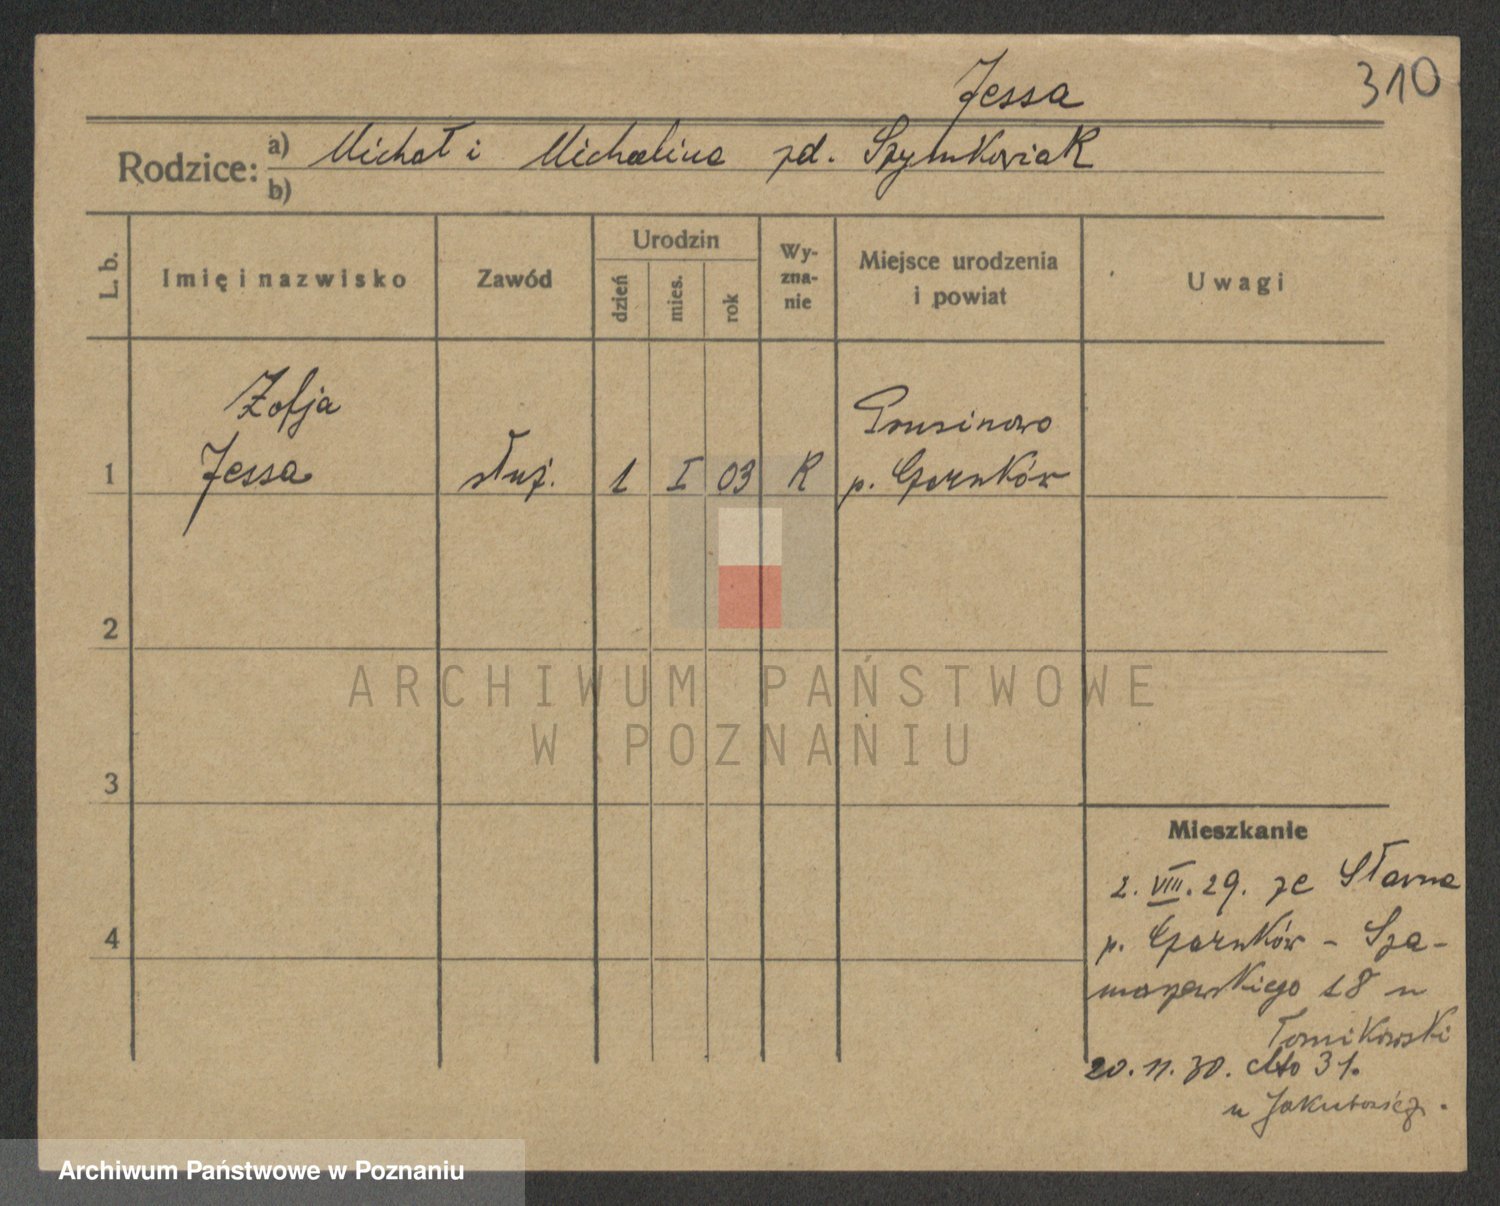 Jessa
310
Rodzice:
a) Michał i Michalina zd. Szymkowiak
b)
L. b.
Imię i nazwisko
Zawód
Urodzin
dzień
mies.
rok
Wy-
zna-
nie
Miejsce urodzenia
i powiat
Uwagi
Zofja
Jessa
Grusinowo
1
służ. 1 I 03 R p. Czarnków
2
ARCHIWUM PAŃSTWOWE
W POZNANIU
3
Mieszkanie
2. VIII. 29. ze Sławna
4
p. Czarnków - Sza-
marzewskiego 18 u
Tomikowski
20. 11. 30. dto 31.
u Jakubowicz.
Archiwum Państwowe w Poznaniu